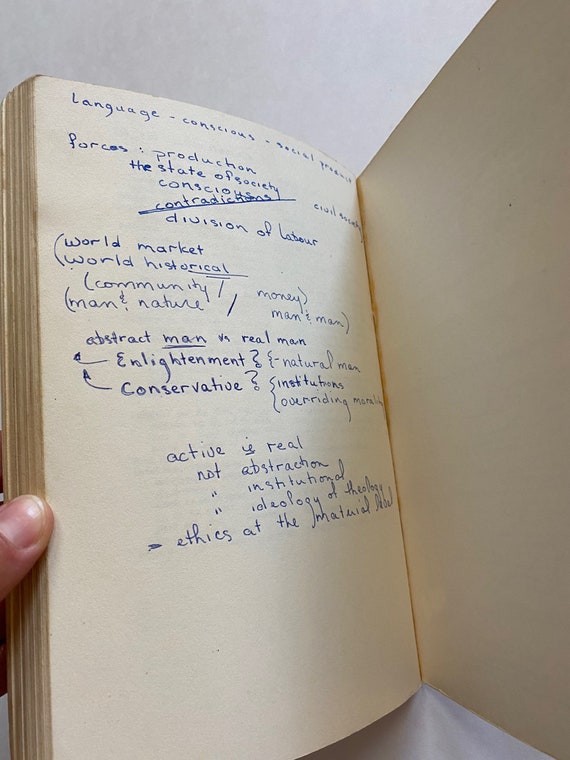 language - conscious - social product
forces : production
the state of society
consciousns
contradictions
civil society
division of labour
(world market
(world historical
(community / money)
(man & nature / man & man)
abstract man vs real man
Enlightenment? {-natural man
Conservative? {institutions
{overriding morality
active is real
not abstraction
" institutional
" ideology of theology
- ethics at the material label